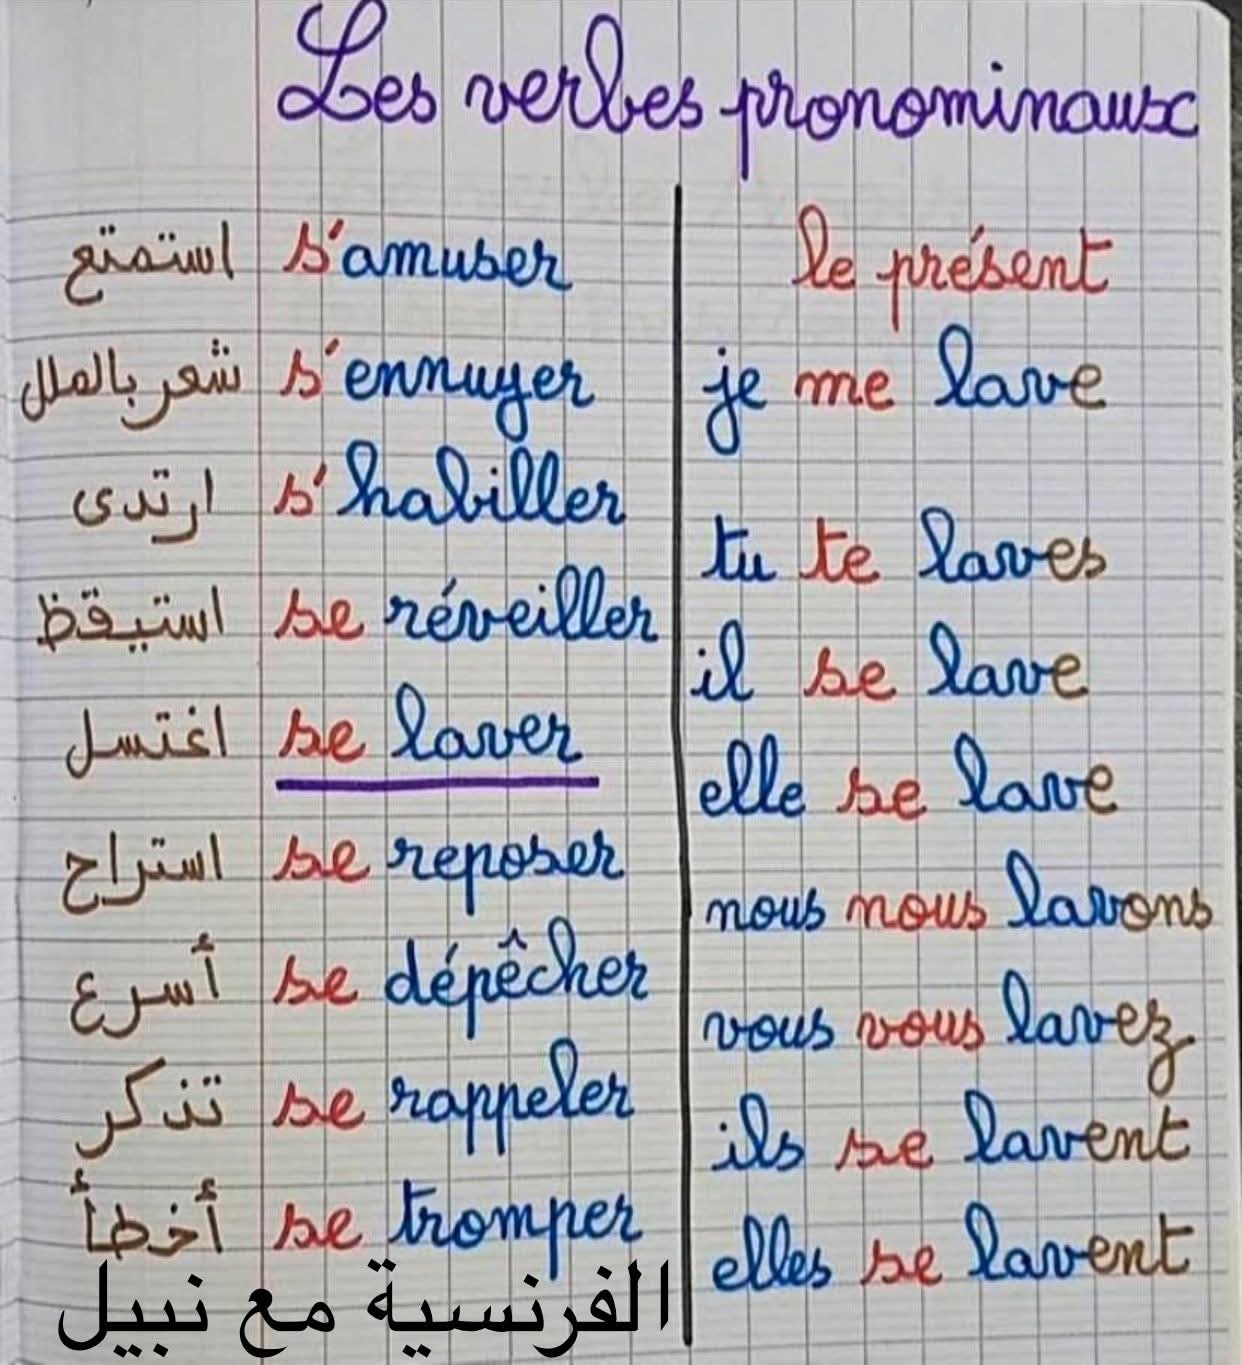 Les verbes pronominaux
s'amuser استمتع
s'ennuyer شعر بالملل
s'habiller ارتدى
se réveiller استيقظ
se laver اغتسل
se reposer استراح
se dépêcher أسرع
se rappeler تذكر
se tromper أخطأ
le présent
je me lave
tu te laves
il se lave
elle se lave
nous nous lavons
vous vous lavez
ils se lavent
elles se lavent
الفرنسية مع نبيل